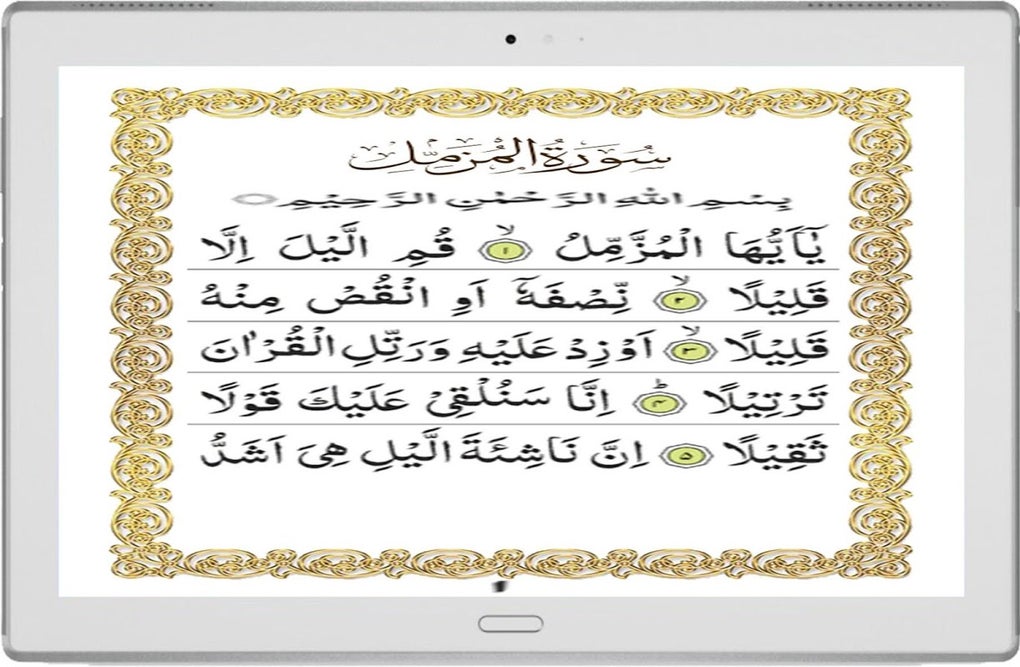 سُورَةُ الْمُزَّمِّل
بِسْمِ اللهِ الرَّحْمٰنِ الرَّحِيْمِ
يٰۤاَيُّهَا الْمُزَّمِّلُ ۙ‏﴿۱﴾ قُمِ الَّيْلَ اِلَّا
قَلِيْلًا ۙ‏﴿۲﴾ نِّصْفَهٗۤ اَوِ انْقُصْ مِنْهُ
قَلِيْلًا ۙ‏﴿۳﴾ اَوْ زِدْ عَلَيْهِ وَرَتِّلِ الْقُرْاٰنَ
تَرْتِيْلًا ؕ‏﴿۴﴾ اِنَّا سَنُلْقِىْ عَلَيْكَ قَوْلًا
ثَقِيْلًا ‏﴿۵﴾ اِنَّ نَاشِئَةَ الَّيْلِ هِىَ اَشَدُّ